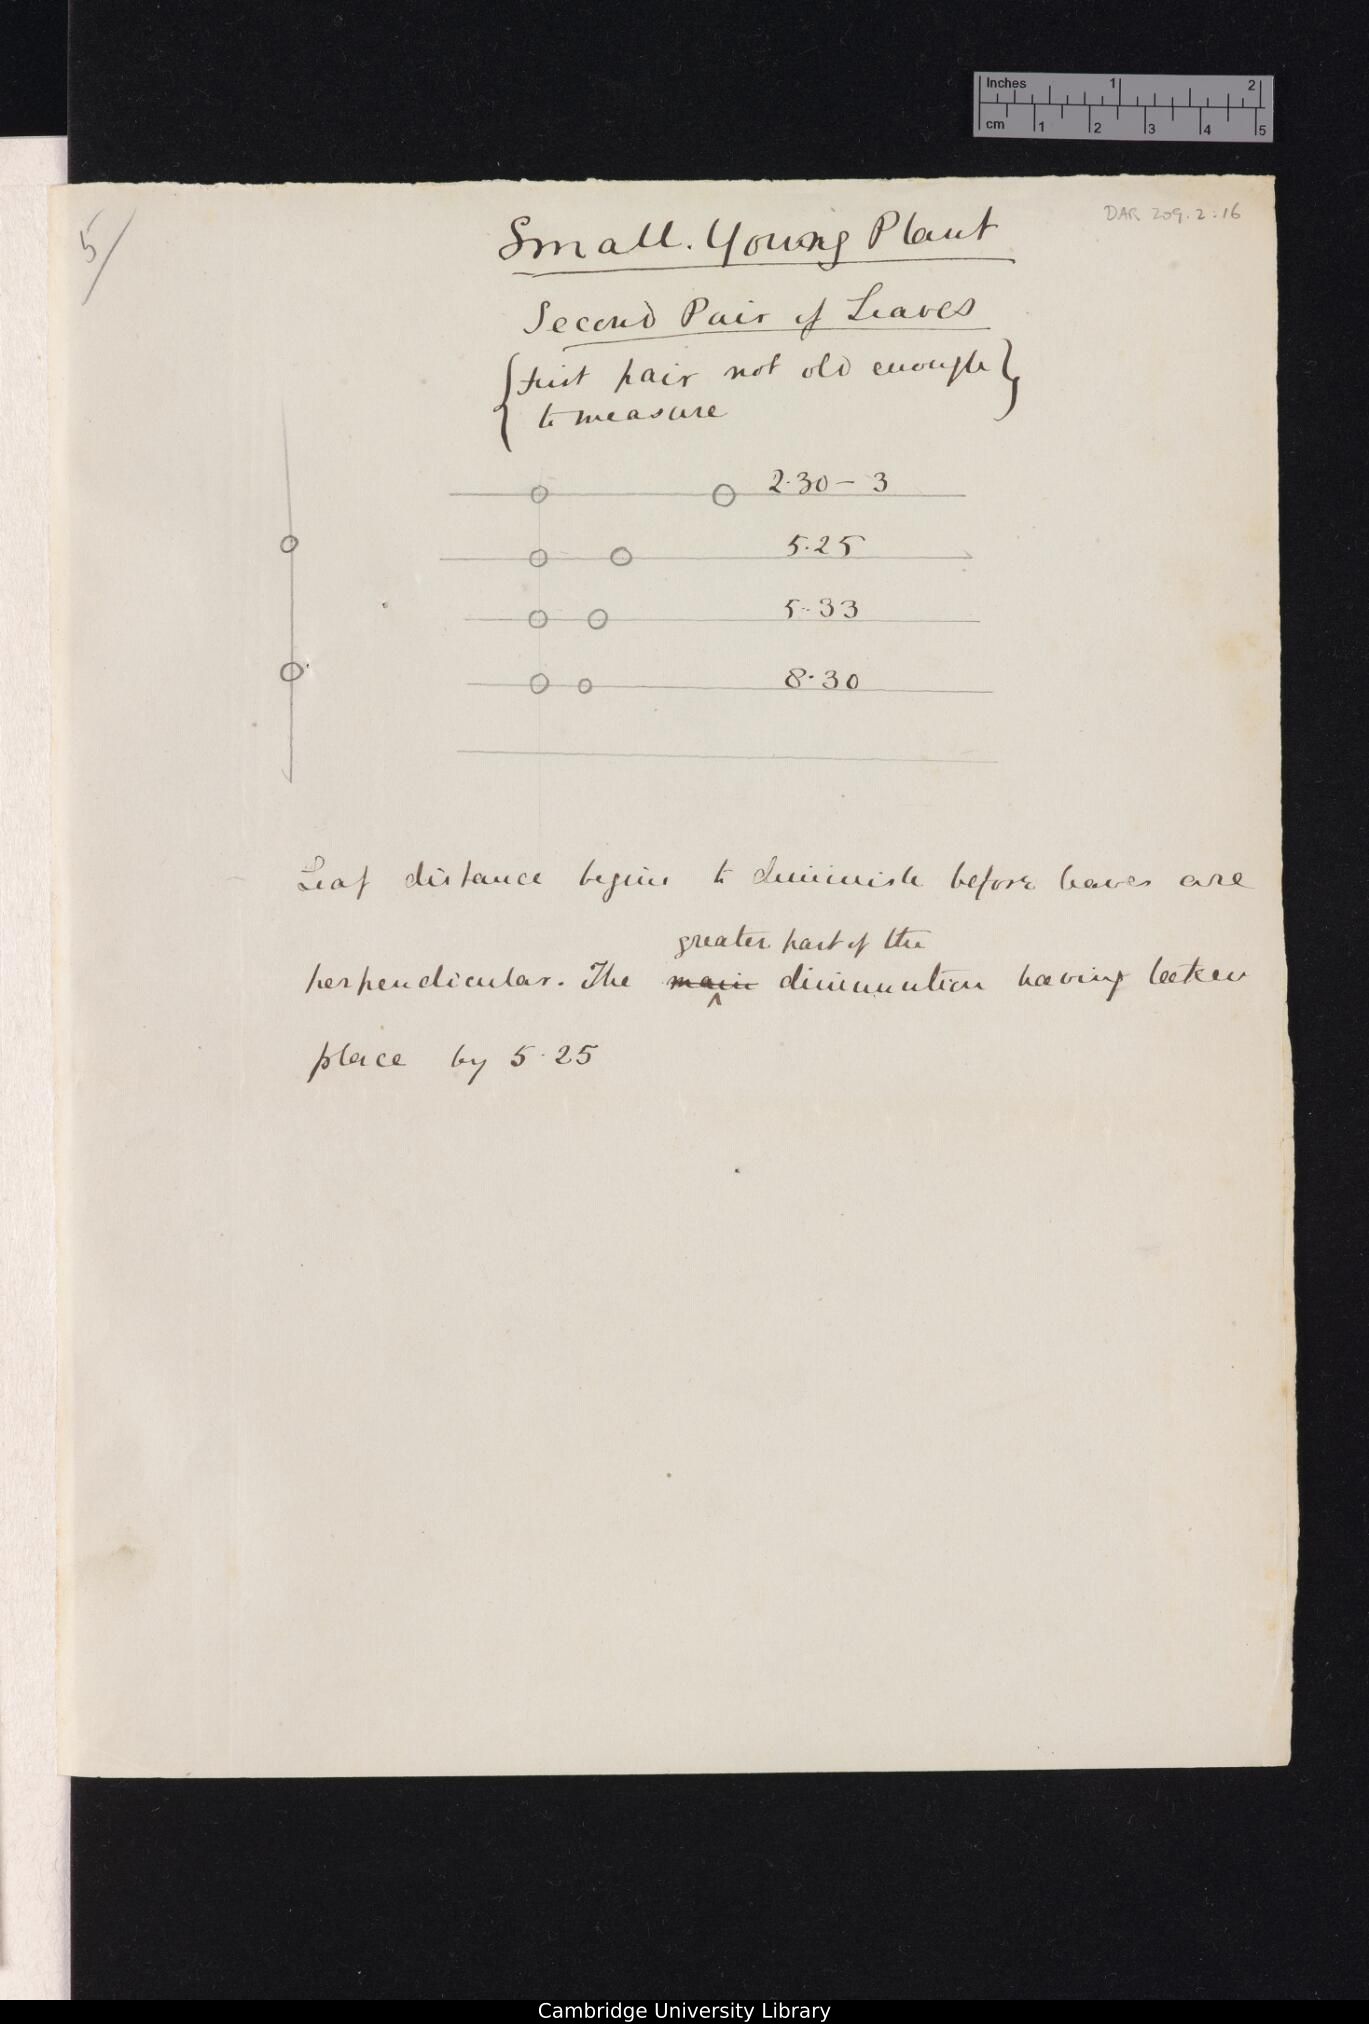 Inches 1 2
cm 1 2 3 4 5
DAR 209.2:16
5/
Small. Young Plant
Second Pair of Leaves
{First pair not old enough}
to measure
2.30 – 3
5.25
5.33
8.30
Leaf distance begins to diminish before leaves are
greater part of the
perpendicular. The main diminution having taken
place by 5.25
Cambridge University Library